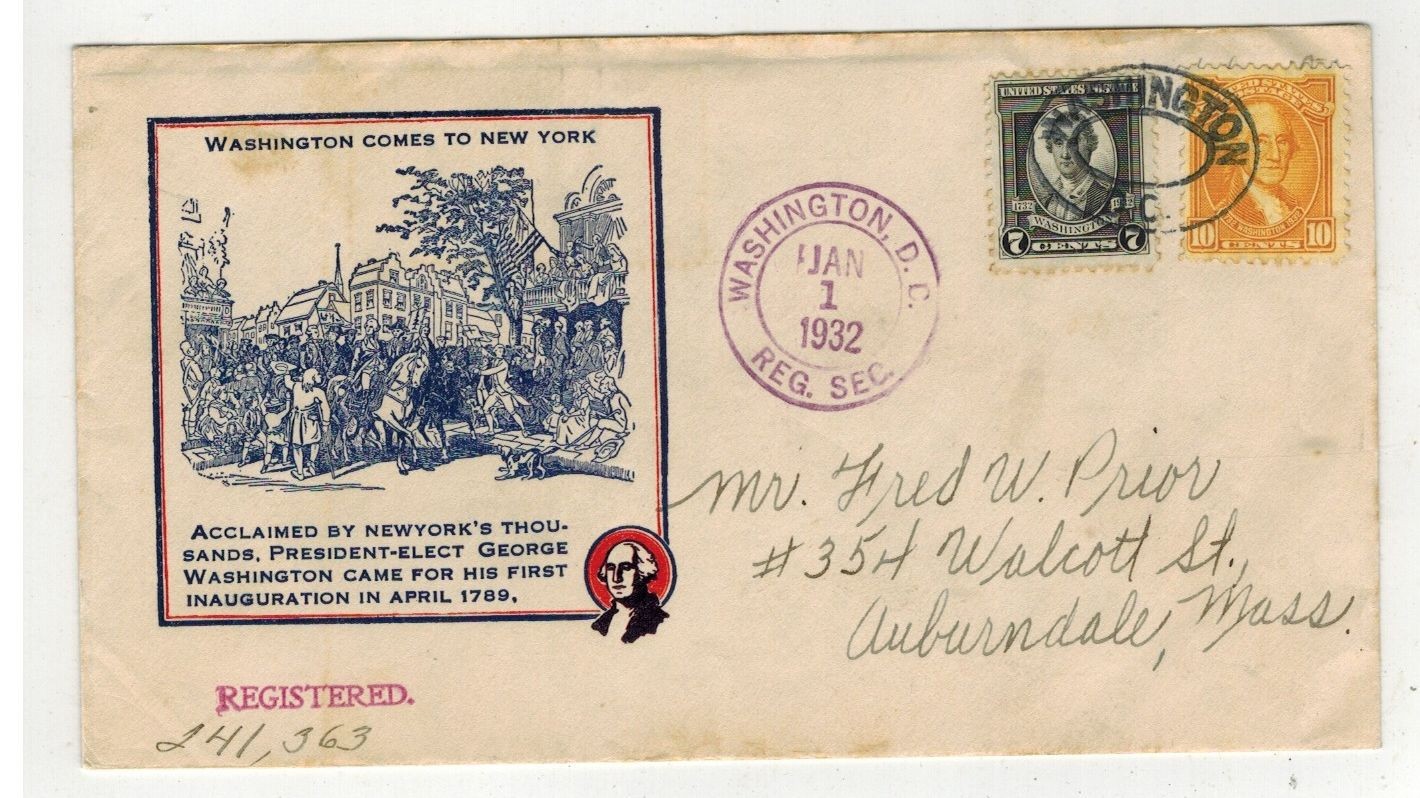 WASHINGTON COMES TO NEW YORK
ACCLAIMED BY NEWYORK'S THOU-
SANDS, PRESIDENT-ELECT GEORGE
WASHINGTON CAME FOR HIS FIRST
INAUGURATION IN APRIL 1789.
REGISTERED.
241,363
WASHINGTON, D.C.
JAN
1
1932
REG. SEC.
UNITED STATES POSTAGE
1732 1932
WASHINGTON
7 CENTS 7
WASHINGTON
UNITED STATES
POSTAGE
WASHINGTON 1932
10 CENTS 10
Mr. Fred W. Prior
#354 Walcott St.,
Auburndale, Mass.